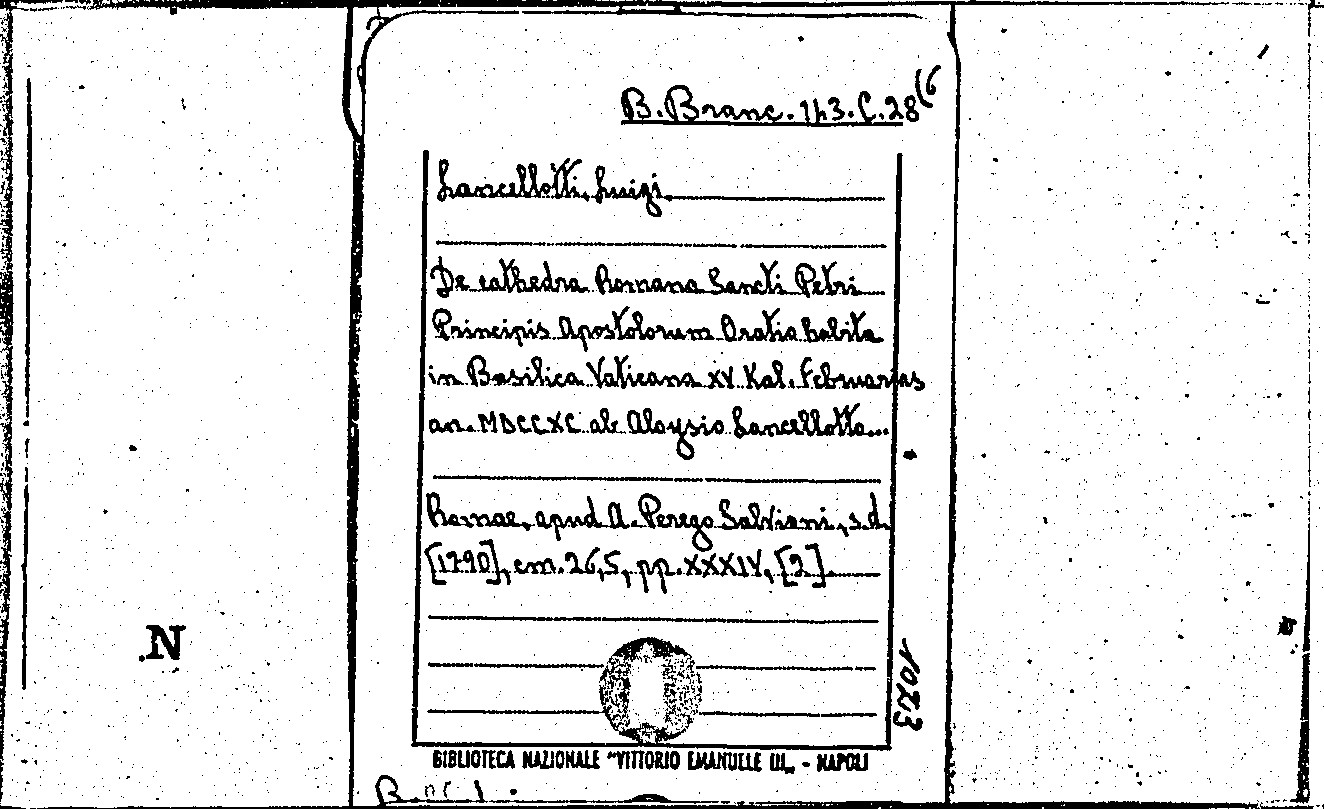 B. Branc. 143. C. 28 (6
Lancellotti, Luigi
De cathedra Romana Sancti Petri
Principis Apostolorum Oratio habita
in Basilica Vaticana XV Kal. Februarias
an. MDCCXC ab Aloysio Lancellotto...
Romae, apud A. Perego Salviani, s.d.
[1790], cm. 26,5, pp. XXXIV, [2].
N
BIBLIOTECA NAZIONALE "VITTORIO EMANUELE III„ - NAPOLI